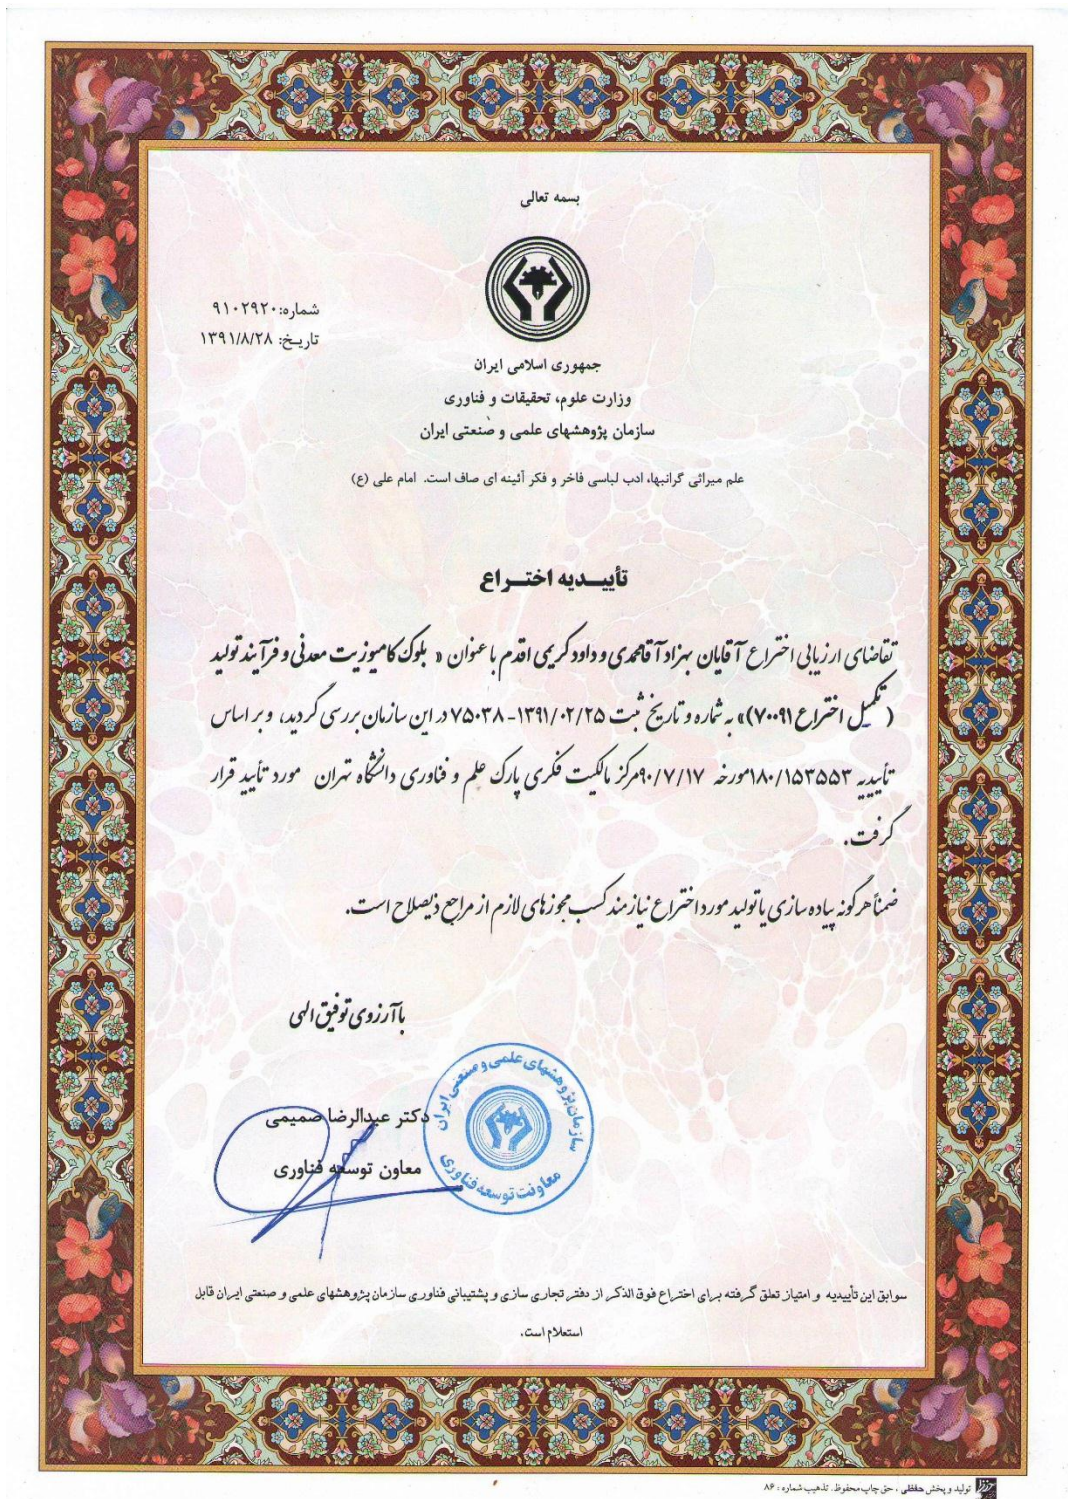 بسمه تعالی
شماره: ۹۱۰۲۹۲۰
تاریخ: ۱۳۹۱/۸/۲۸
جمهوری اسلامی ایران
وزارت علوم، تحقیقات و فناوری
سازمان پژوهشهای علمی و صنعتی ایران
علم میراثی گرانبها، ادب لباسی فاخر و فکر آئینه ای صاف است. امام علی (ع)
تأییدیه اختراع
تقاضای ارزیابی اختراع آقایان بهزاد آقامحمدی و داود کریمی اقدم با عنوان « بلوک کامپوزیت معدنی و فرآیند تولید
( تکمیل اختراع ۷۰۰۹۱)» به شماره و تاریخ ثبت ۱۳۹۱/۰۲/۲۵-۷۵۰۳۸ در این سازمان بررسی گردید، و بر اساس
تأییدیه ۱۸۰/۱۵۳۵۵۳ مورخه ۹۰/۷/۱۷ مرکز مالکیت فکری پارک علم و فناوری دانشگاه تهران مورد تأیید قرار
گرفت.
ضمناً هرگونه پیاده سازی یا تولید مورد اختراع نیازمند کسب مجوزهای لازم از مراجع ذیصلاح است.
با آرزوی توفیق الهی
سازمان پژوهشهای علمی و صنعتی ایران
معاونت توسعه فناوری
دکتر عبدالرضا صمیمی
معاون توسعه فناوری
سوابق این تأییدیه و امتیاز تعلق گرفته برای اختراع فوق الذکر از دفتر تجاری سازی و پشتیبانی فناوری سازمان پژوهشهای علمی و صنعتی ایران قابل
استعلام است.
تولید و پخش حفظی ، حق چاپ محفوظ. تذهیب شماره : ۸۶